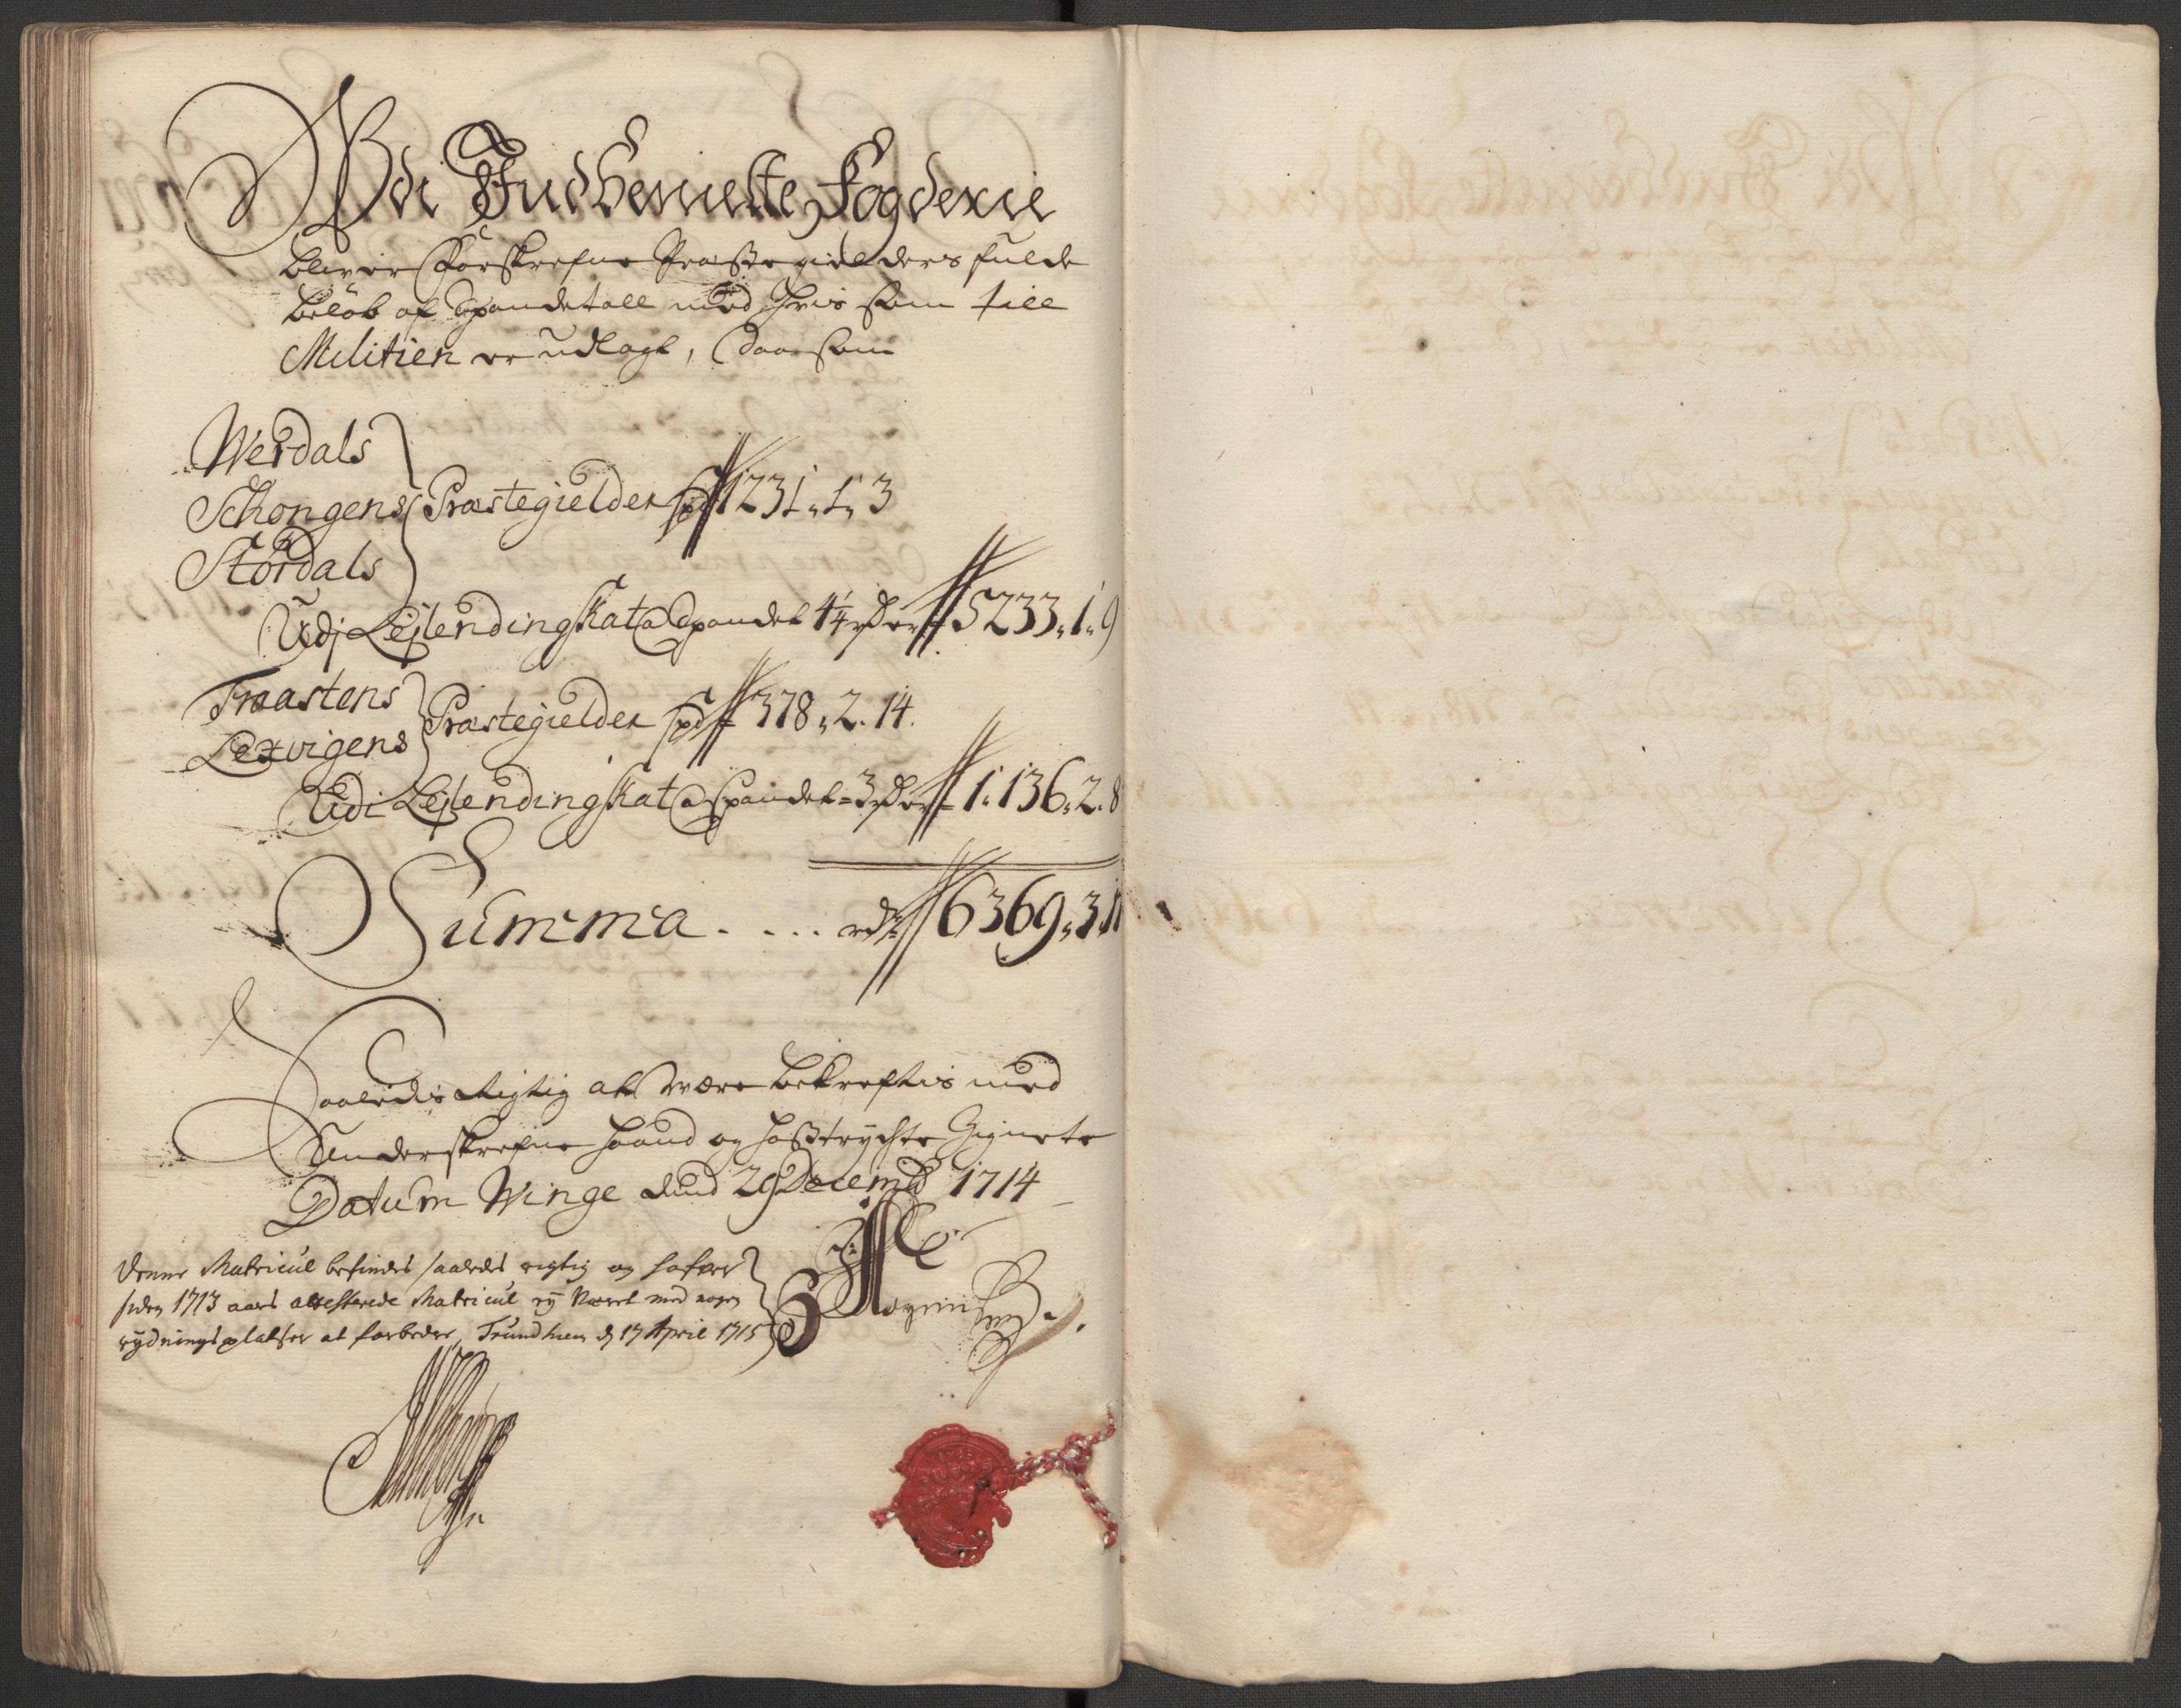 Udi Indbemelte Fogderie
bliver Forskrefne Præstegielders fulde
beløb af Spandetall med Hvis som till
Militien er udlagt, saasom
Werdals
Schongens Præstegielder spd 1231„1„3
Stördals
Udj Lejlendingskat a Spandet 4¼ rdr 5233„1„9
Fraastens
Lexvigens Præstegielder spd 378„2.14.
Udi Lejlendingskat a Spandet 3 rdr 1136„2„8
Summa . . . . rdr 6369„3„
Saaledis Rigtig at være bekreftis med
Underskrefne haand og hostrychte Signete
Datum Winge dend 29 Decemb 1714
Denne Matricul befindes saaledes rigtig og hafver
siden 1713 aars attesterede Matricul ey været med nogen
rydningsplatser at forbedre, Trundhiem d 17 April 1715